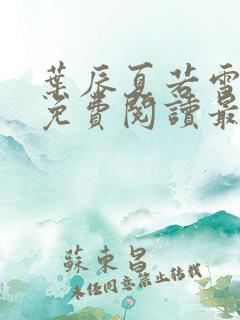 葉辰夏若雪
免費閱讀最
蘇東昌
未經同意禁止轉載